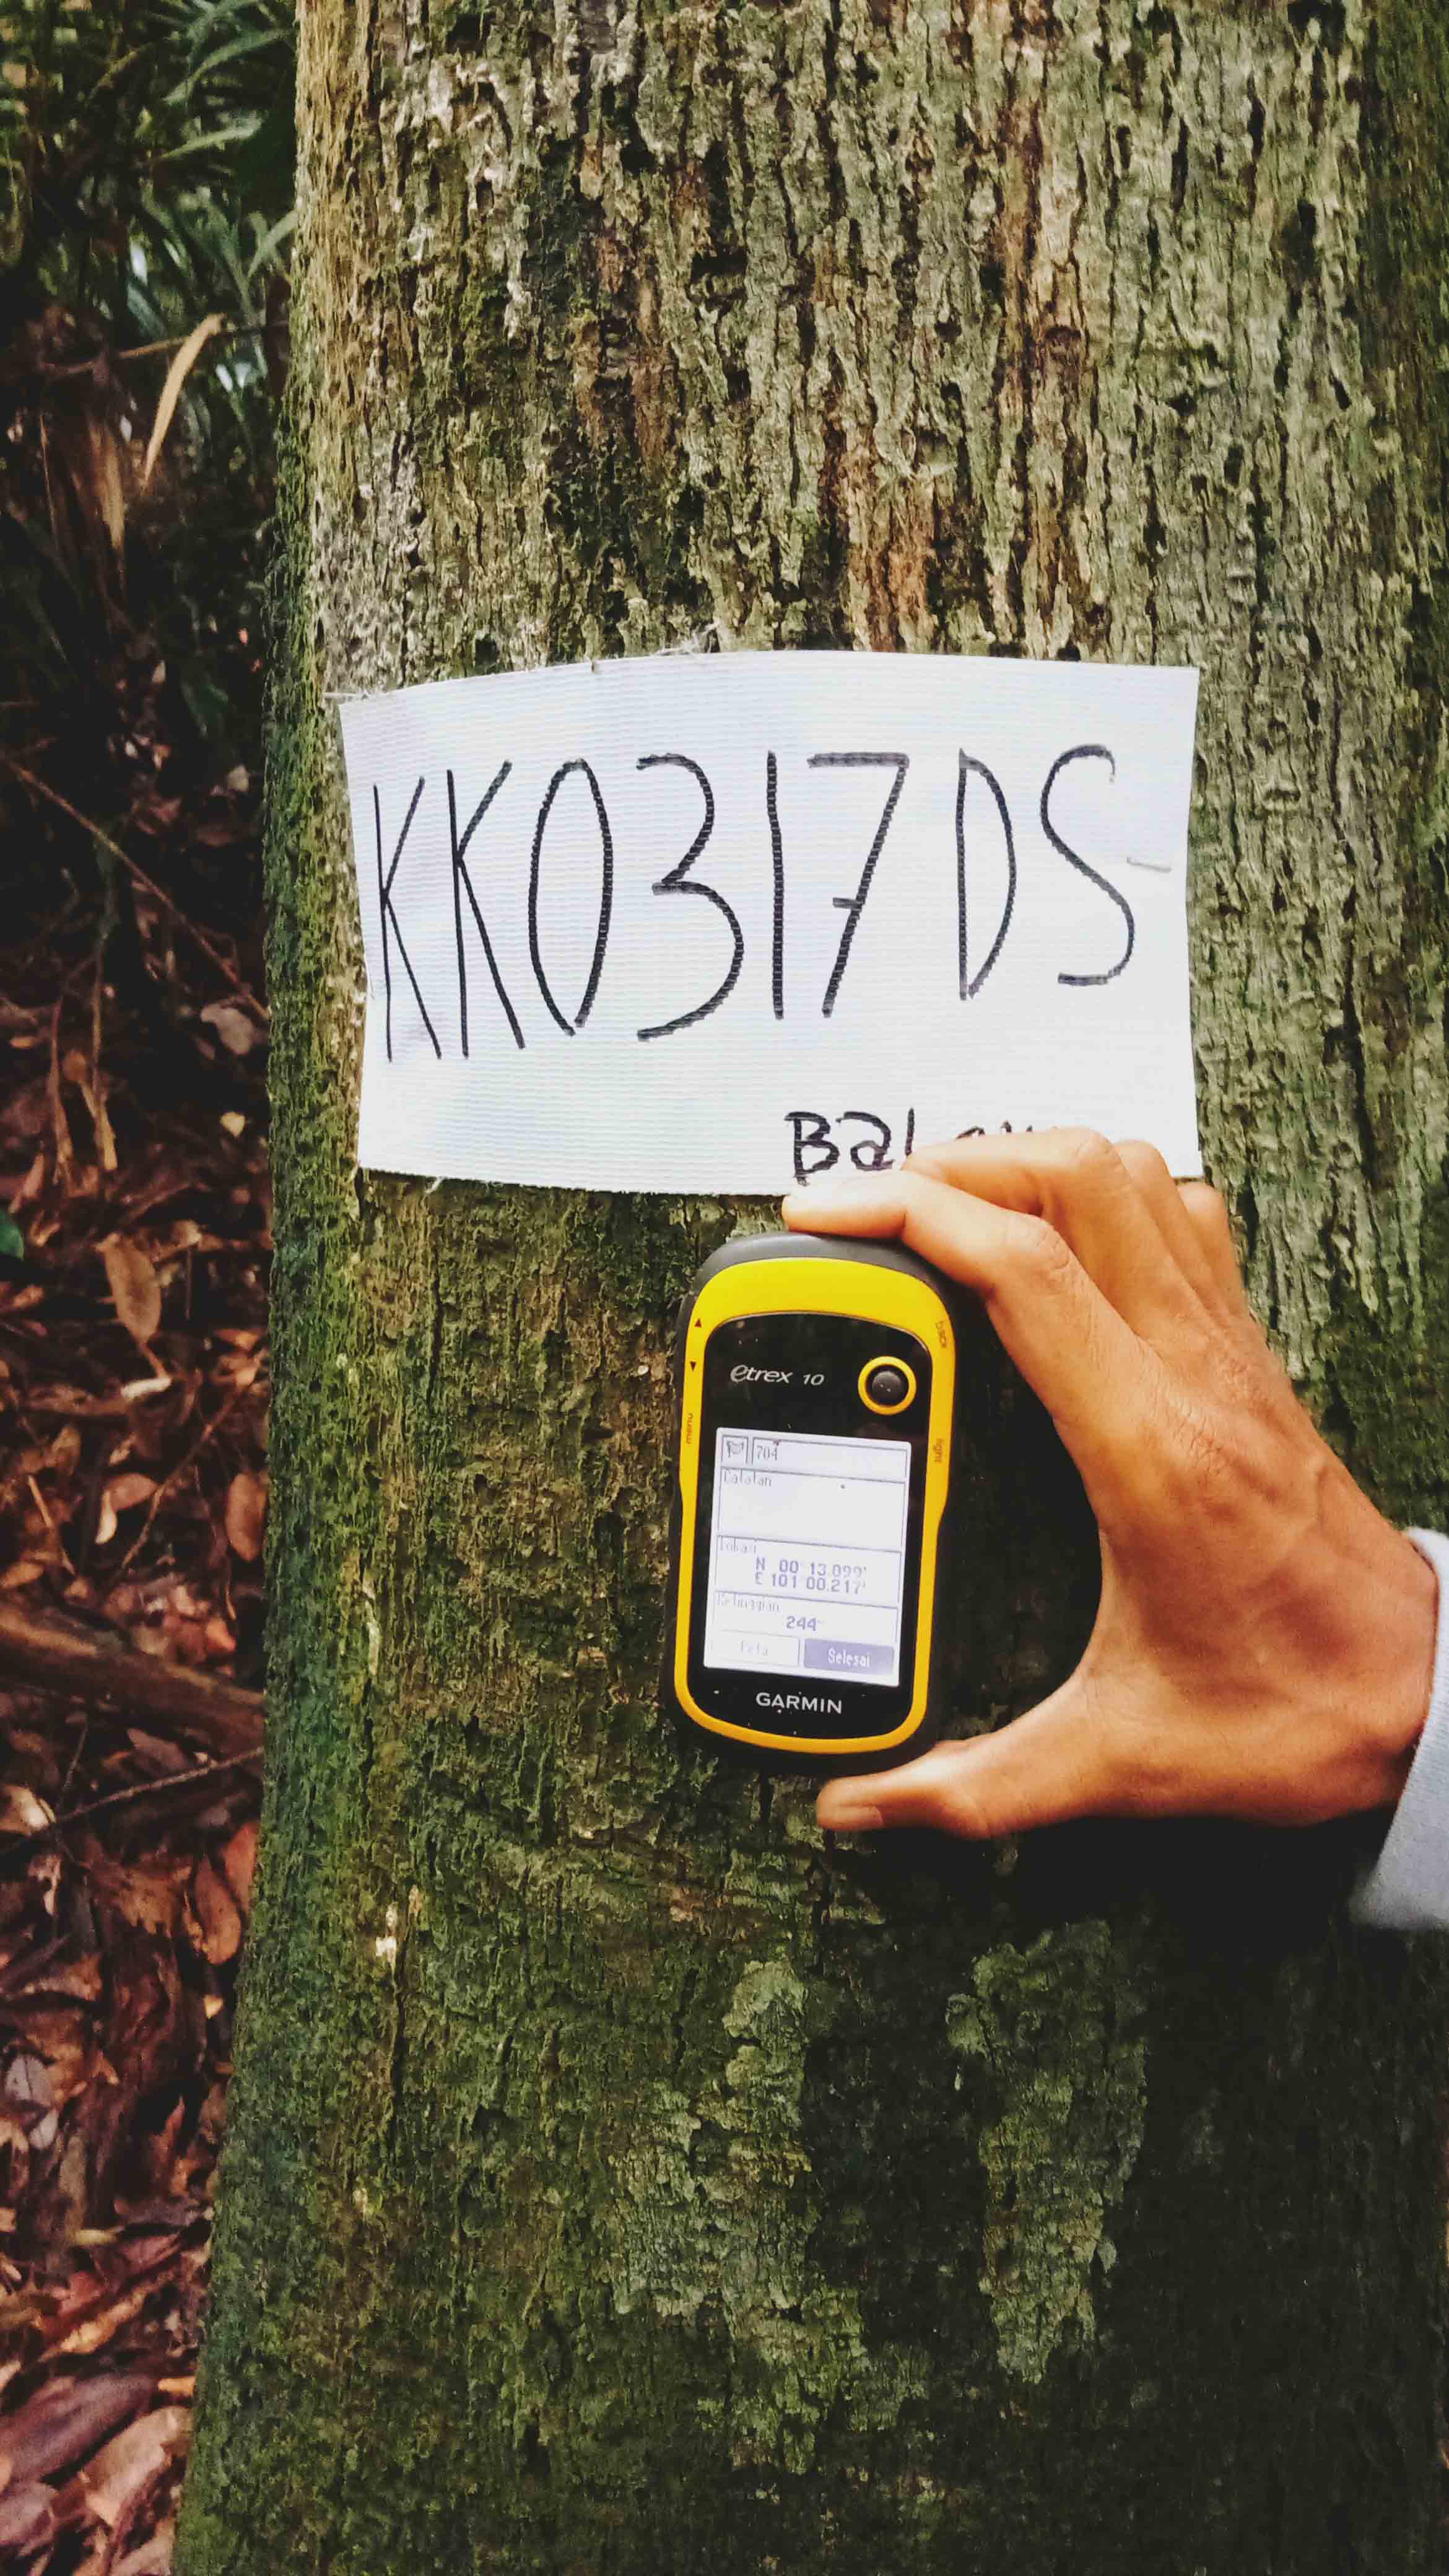 KK0317DS
etrex 10
back
menu
light
704
Catatan
Lokasi
N 00°13.099'
E 101°00.217'
Ketinggian
244
Peta
Selesai
GARMIN